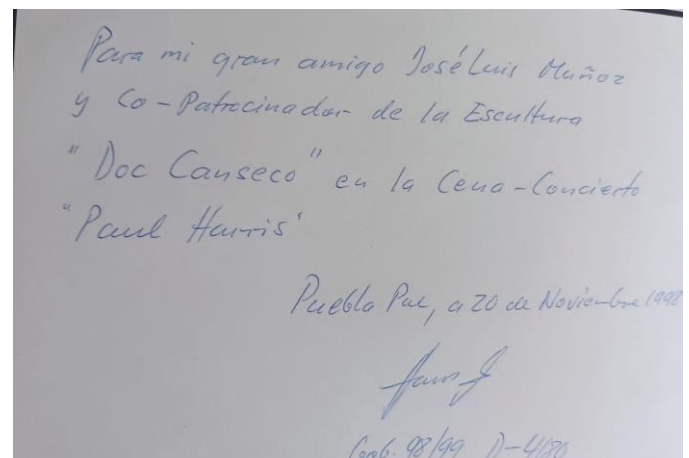 Para mi gran amigo José Luis Muñoz
y Co-Patrocinador de la Escultura
"Doc Canseco" en la Cena-Concierto
"Paul Harris"
Puebla Pue, a 20 de Noviembre 1998
98/99 D-4180